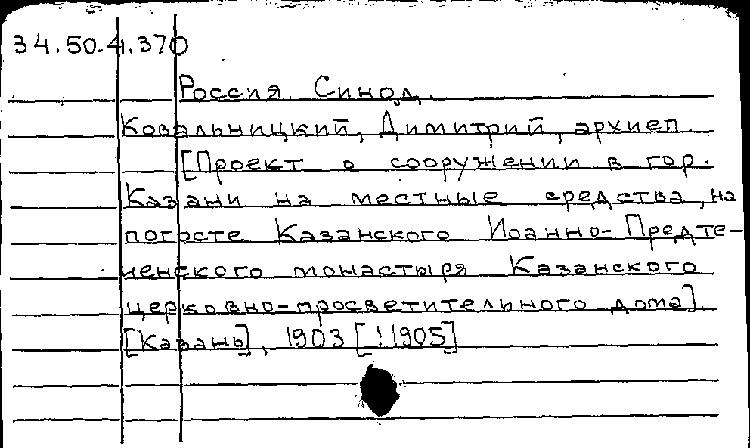 34.50.4.370
Россия. Синод.
Ковальницкий, Димитрий, архиеп.
[Проект о сооружении в гор.
Казани на местные средства, на
погосте Казанского Иоанно-Предте-
ченского монастыря Казанского
церковно-просветительного дома].
[Казань], 1903 [!1905]